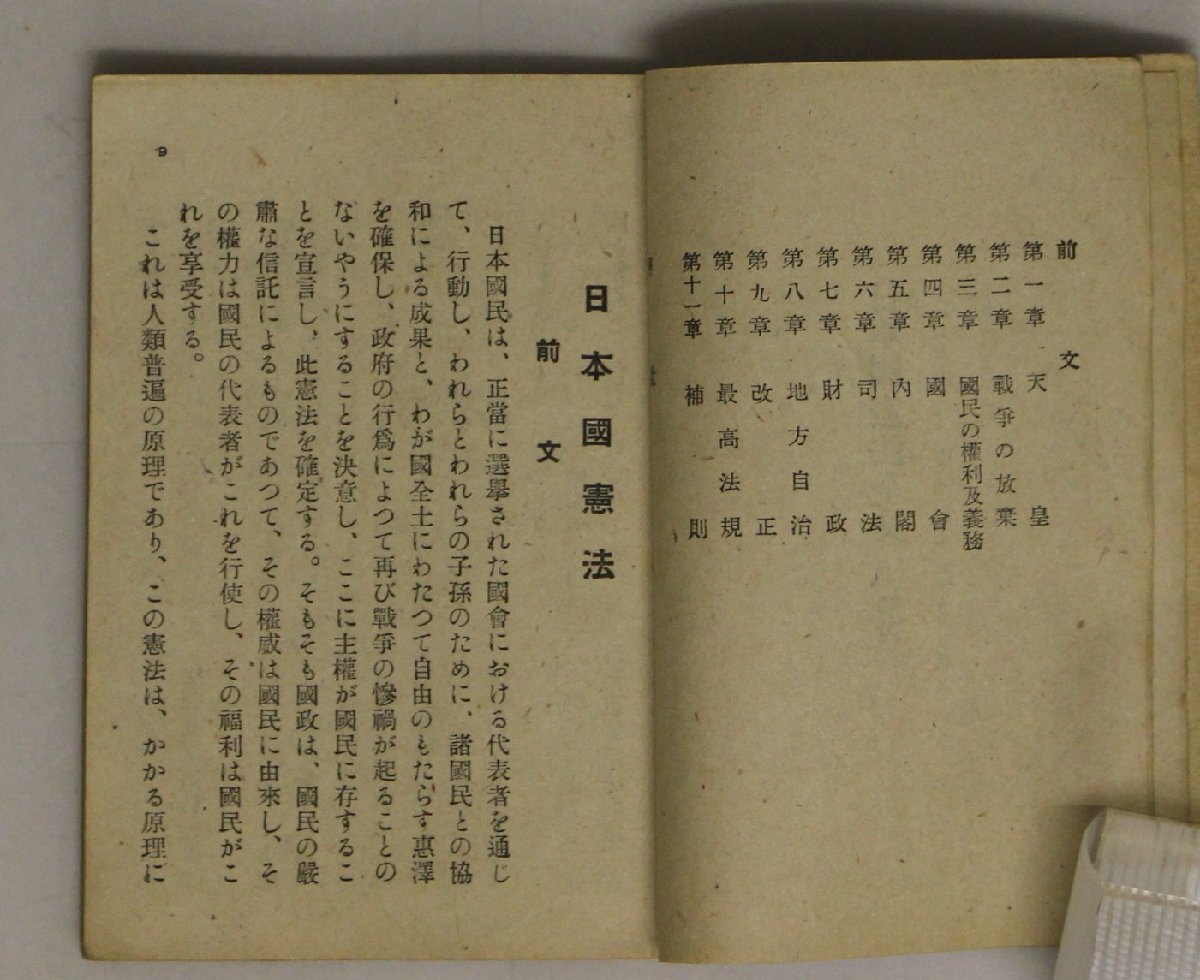 前文
第一章 天皇
第二章 戰爭の放棄
第三章 國民の權利及義務
第四章 國會
第五章 內閣
第六章 司法
第七章 財政
第八章 地方自治
第九章 改正
第十章 最高法規
第十一章 補則
日本國憲法
前文
日本國民は、正當に選擧された國會における代表者を通じ
て、行動し、われらとわれらの子孫のために、諸國民との協
和による成果と、わが國全土にわたつて自由のもたらす惠澤
を確保し、政府の行爲によつて再び戰爭の慘禍が起ることの
ないやうにすることを決意し、ここに主權が國民に存するこ
とを宣言し、此憲法を確定する。そもそも國政は、國民の嚴
肅な信託によるものであつて、その權威は國民に由來し、そ
の權力は國民の代表者がこれを行使し、その福利は國民がこ
れを享受する。
これは人類普遍の原理であり、この憲法は、かかる原理に